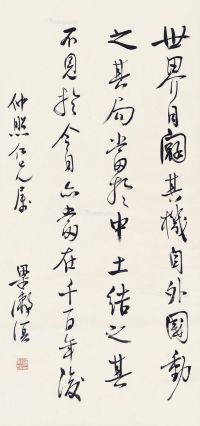 世界日其機自外國動
之其局當於中土結之其
不見於今日亦當在千百年後
仲照仁兄屬
梁漱溟